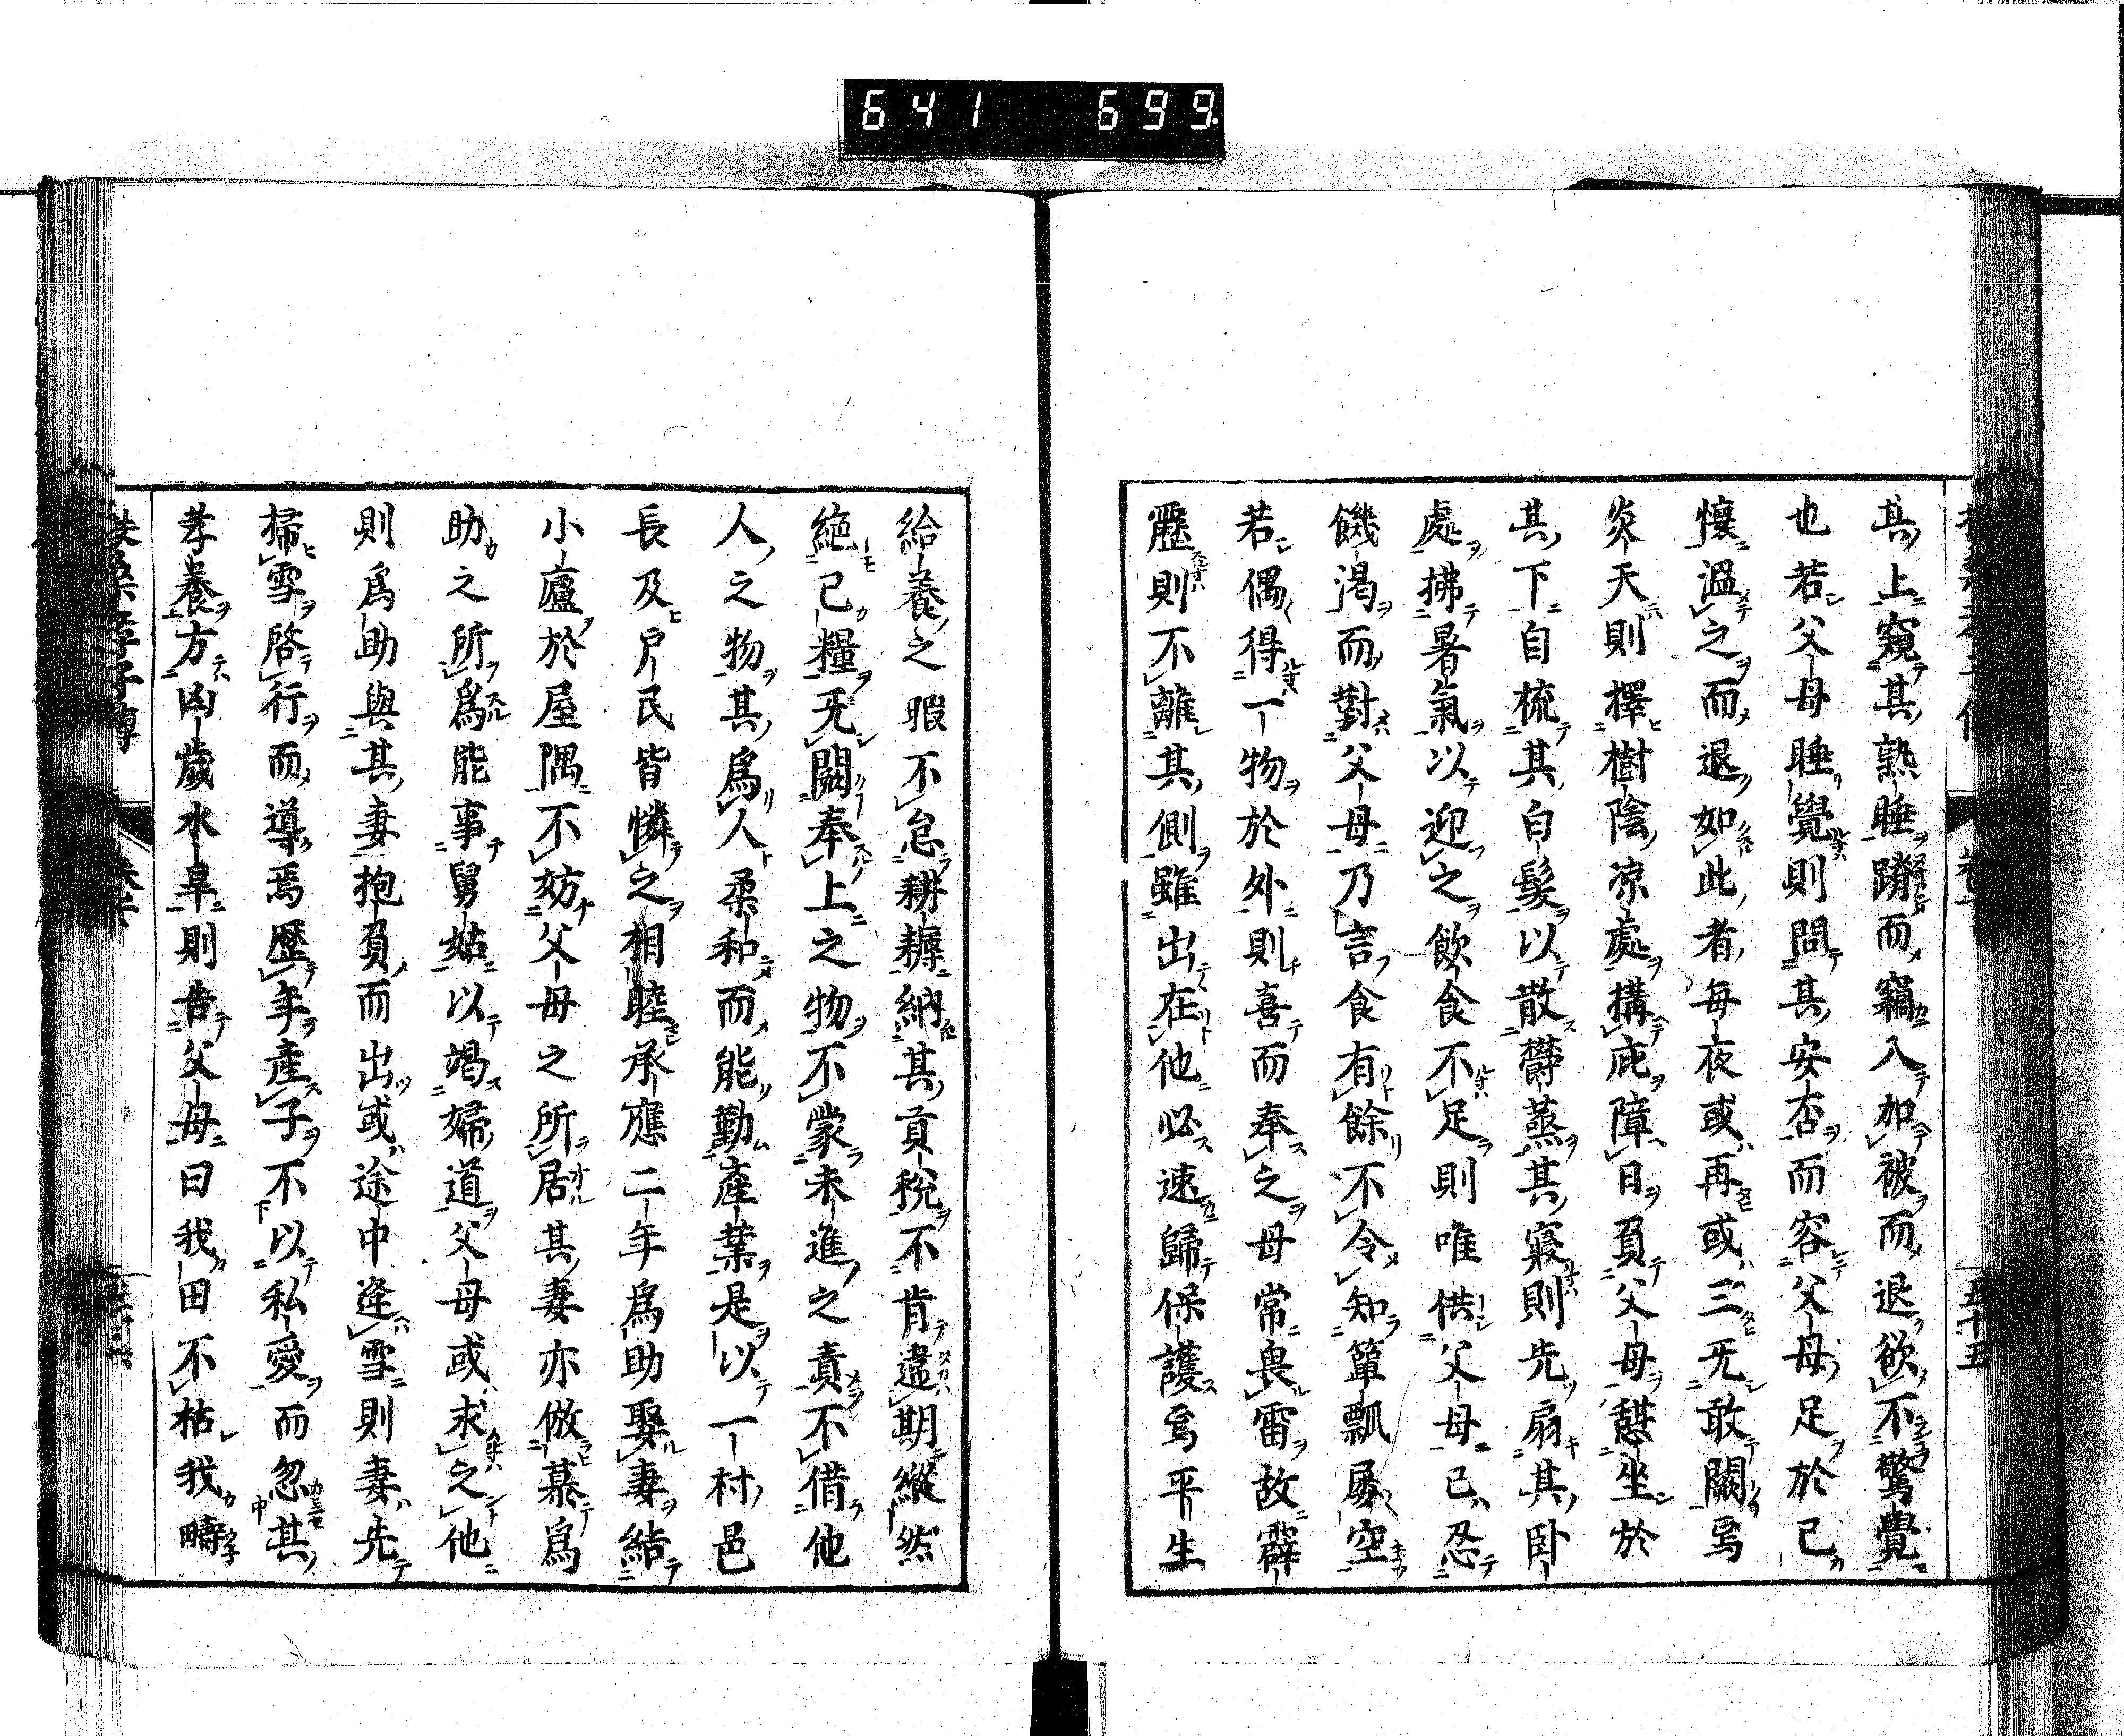 641 699.
五十五
其上窺其熟睡蹐而竊入加被而退欲不驚覺
也若父母睡覺則問其安否而容父母足於己
懷溫之而退如此者每夜或再或三无敢闕焉
炎天則擇樹陰凉處搆庇障日負父母憇坐於
其下自梳其白髮以散欝蒸其寢則先扇其臥
處拂暑氣以迎之飲食不足則唯供父母已忍
饑渇而對父母乃言食有餘不令知簞瓢屡空
若偶得一物於外則喜而奉之母常畏雷故霹
靂則不離其側雖出在他必速歸保護焉平生
給養之暇不怠耕耨納其貢稅不肯違期縱然
絕已糧无闕奉上之物不蒙未進之責不借他
人之物其爲人柔和而能勤產業是以一村邑
長及戶民皆憐之相睦承應二年爲助娶妻結
小廬於屋隅不妨父母之所居其妻亦倣慕爲
助之所爲能事舅姑以竭婦道父母或求之他
則爲助與其妻抱負而出或途中逢雪則妻先
掃雪啓行而導焉歷年產子不以私愛而忽其
孝養方凶歲水旱則告父母曰我田不枯我疇
扶桑孝子傳